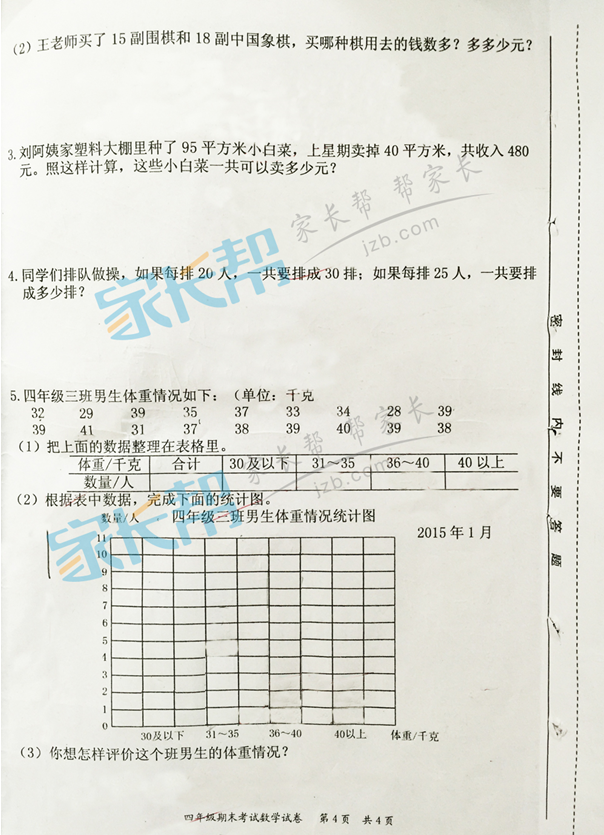 (2) 王老师买了 15 副围棋和 18 副中国象棋，买哪种棋用去的钱数多？多多少元？
3. 刘阿姨家塑料大棚里种了 95 平方米小白菜，上星期卖掉 40 平方米，共收入 480
元。照这样计算，这些小白菜一共可以卖多少元？
家长帮
家长帮 帮家长
jzb.com
4. 同学们排队做操，如果每排 20 人，一共要排成 30 排；如果每排 25 人，一共要排
成多少排？
5. 四年级三班男生体重情况如下：（单位：千克
32 29 39 35 37 33 34 28 39
39 41 31 37 38 39 40 39 38
(1) 把上面的数据整理在表格里。
体重/千克 合计 30及以下 31～35 36～40 40以上
数量/人
(2) 根据表中数据，完成下面的统计图。
家长帮
家长帮 帮家长
jzb.com
数量/人 四年级三班男生体重情况统计图
2015 年 1 月
11
10
9
8
7
6
5
4
3
2
1
0
30及以下 31～35 36～40 40以上 体重/千克
(3) 你想怎样评价这个班男生的体重情况？
四年级期末考试数学试卷 第 4 页 共 4 页
密封线内不要答题